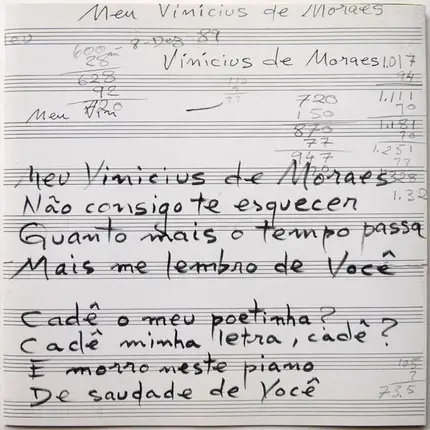 Meu Vinicius de Moraes
8-Dez-89
Vinicius de Moraes
600
28
628
92
720
1.017
94
1.111
70
1.181
70
1.251
77
1.328
720
150
870
77
947
Meu Vini
Meu Vinicius de Moraes
Não consigo te esquecer
Quanto mais o tempo passa
Mais me lembro de Você
Cadê o meu poetinha?
Cadê minha letra, cadê?
E morro neste piano
De saudade de Você
105
7
73.5